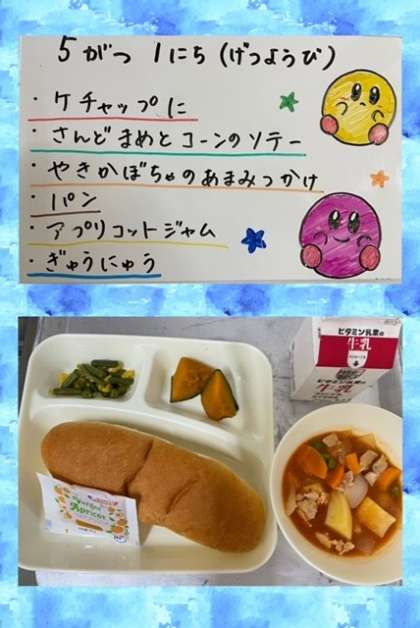 5がつ 1にち(げつようび)
・ケチャップに
・さんどまめとコーンのソテー
・やきかぼちゃのあまみつかけ
・パン
・アプリコットジャム
・ぎゅうにゅう
ビタミン乳業の
牛乳
ビタミン乳業の
牛乳
Apricot